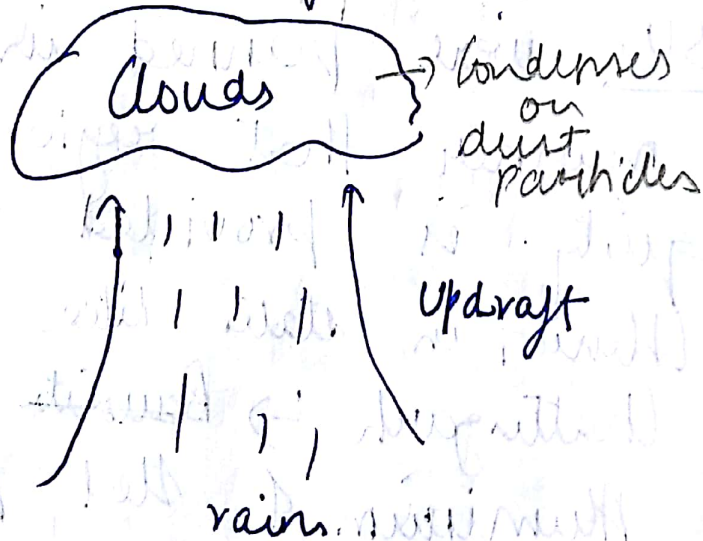 Clouds
→ Condenses
on
dust
particles
Updraft
rains